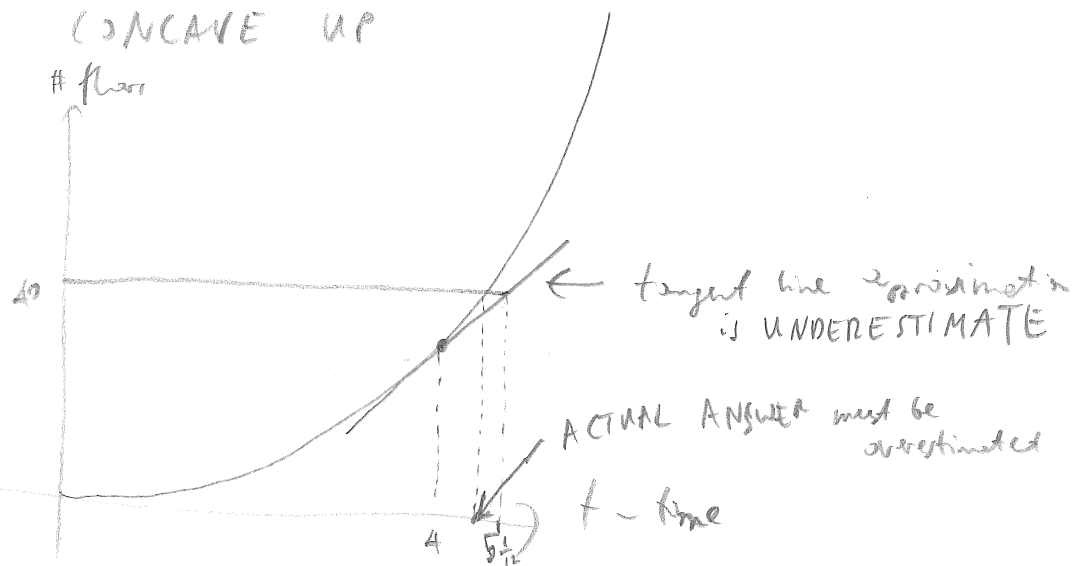 CONCAVE UP
#
40
← tangent line approximation
is UNDERESTIMATE
ACTUAL ANSWER must be
overestimated
t - time
4
5 1/12